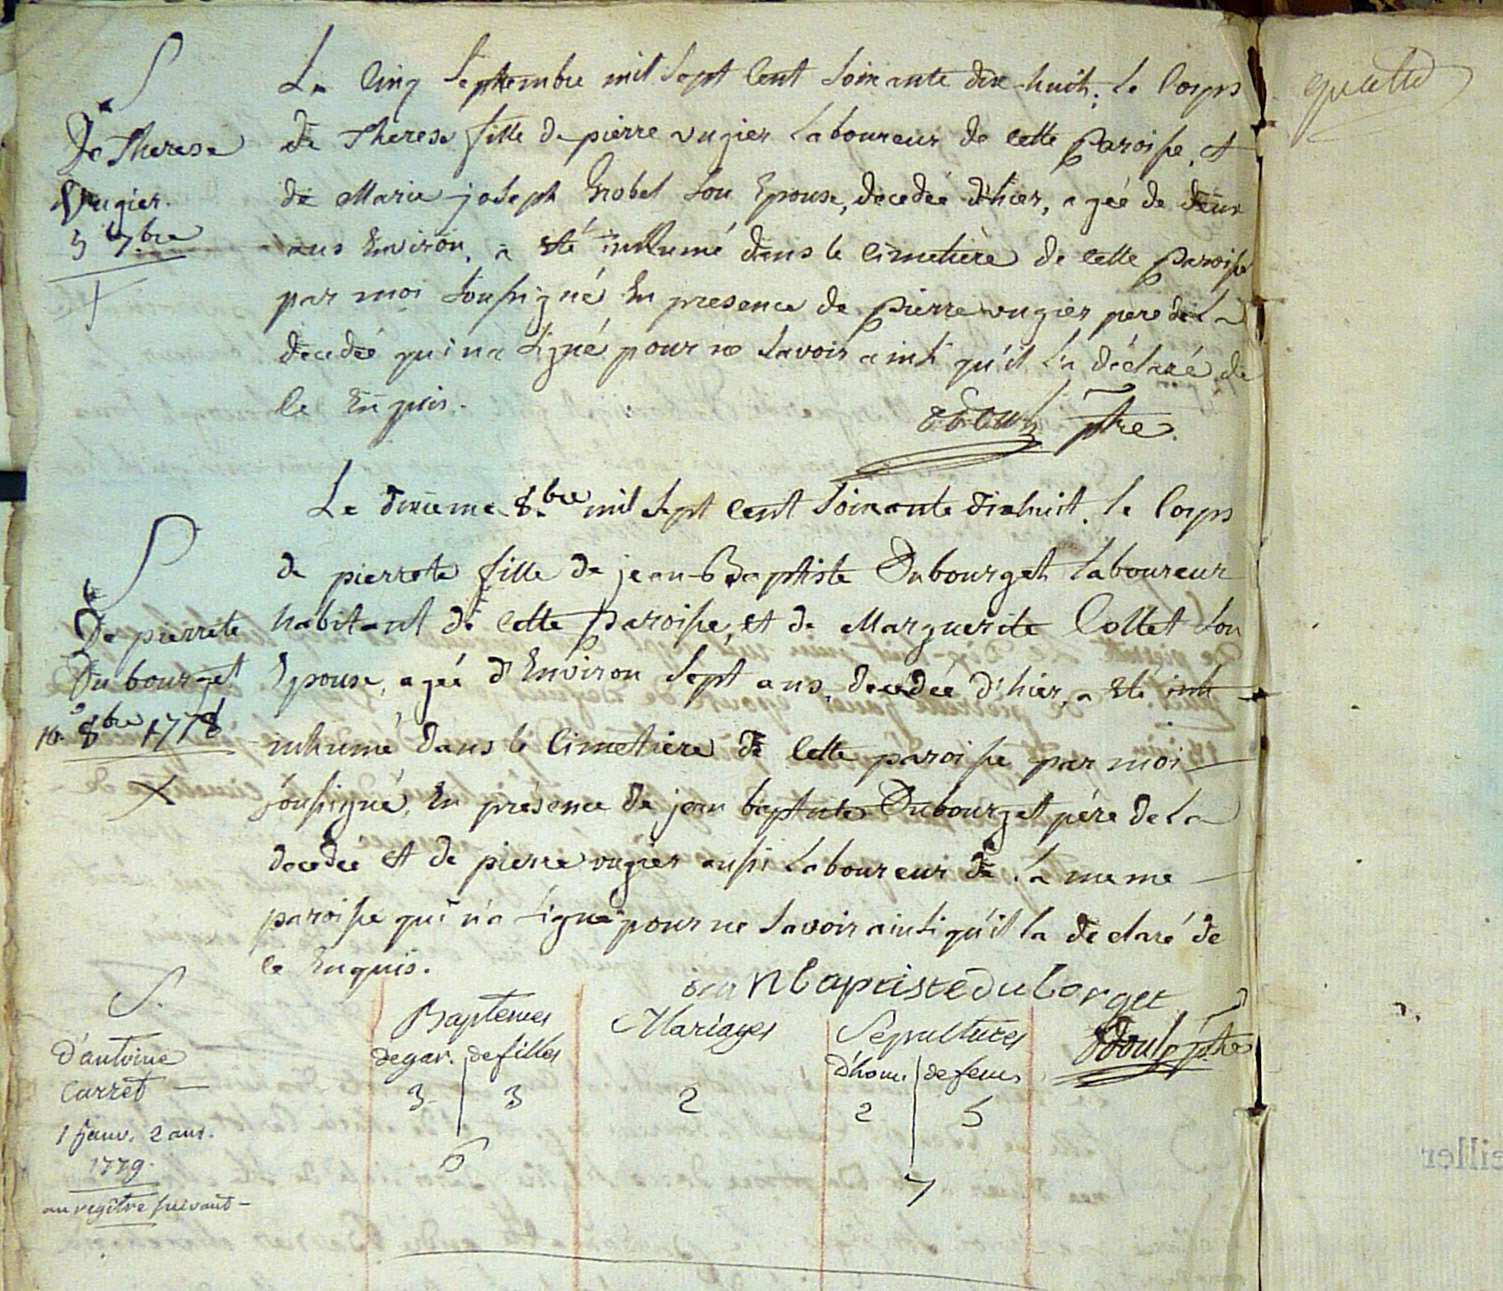 S
De Therese
Vugier.
5 7bre
Le Cinq Septembre mil Sept Cent Soixante dix-huit, le Corps
de Therese fille de pierre vugier Laboureur de cette Paroisse, et
de Marie joseph Grobel Son Epouse, decedée d'hier, agée de deux
ans Environ, a eté inhumé dans le Cimetière de cette Paroisse
par moi Soussigné En presence de Pierre vugier pere de La
decedée qui n'a Signé pour ne Savoir ainsi qu'il l'a déclaré de
ce Enquis.
ptre.
S
De pierrete
Dubourget
10 8bre 1778
Le dixieme 8.bre mil Sept Cent Soixante dixhuit, le Corps
de pierrete fille de jean-Baptiste Dubourget Laboureur
habitant de cette Paroisse, et de Marguerite Collet Son
Epouse, agée d'Environ Sept ans, decedée d'hier, a eté inh
inhumé dans le Cimetiere de cette paroisse par moi
soussigné, En présence de jean baptiste Dubourget pére de La
decedée et de pierre vugier aussi Laboureur de La meme
paroisse qui n'a Signé pour ne Savoir ainsi qu'il la declaré de
ce Enquis.
Baptiste du borget
ptre
S.
d'antoine
Carret
1 janv. 2 ans.
1779.
au regitre suivant
Baptemes Mariages Sepultures
de gar. de filles d'hom. de fem.
3 3 2 2 5
6 7
quatre